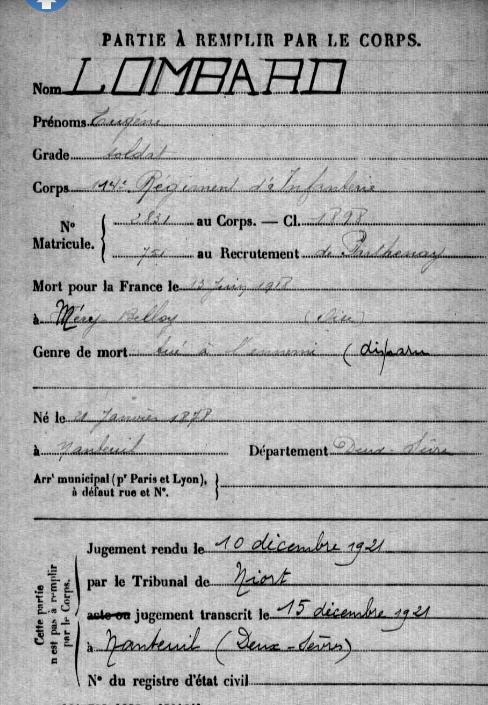 PARTIE À REMPLIR PAR LE CORPS.
Nom LOMBARD
Prénoms Eugène
Grade soldat
Corps 114e Régiment d'Infanterie
N° Matricule. { 2831 au Corps. — Cl. 1898
751 au Recrutement de Parthenay
Mort pour la France le 13 juin 1918
à Méry-Belloy (Oise)
Genre de mort tué à l'ennemi (disparu
Né le janvier 1878
à Nanteuil Département Deux-Sèvres
Arrt municipal (pr Paris et Lyon), à défaut rue et N°. }
Cette partie n'est pas à remplir par le Corps.
Jugement rendu le 10 décembre 1921
par le Tribunal de Niort
acte ou jugement transcrit le 15 décembre 1921
à Nanteuil (Deux-Sèvres)
N° du registre d'état civil